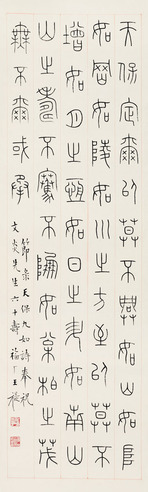 天保定爾以莫不興如山如阜
如岡如陵如川之方至以莫不
增如月之恆如日之升如南
山之壽不騫不崩如松柏之茂
無不爾或承
節錄天保九如詩奉祝
先生六十壽 福厂王禔